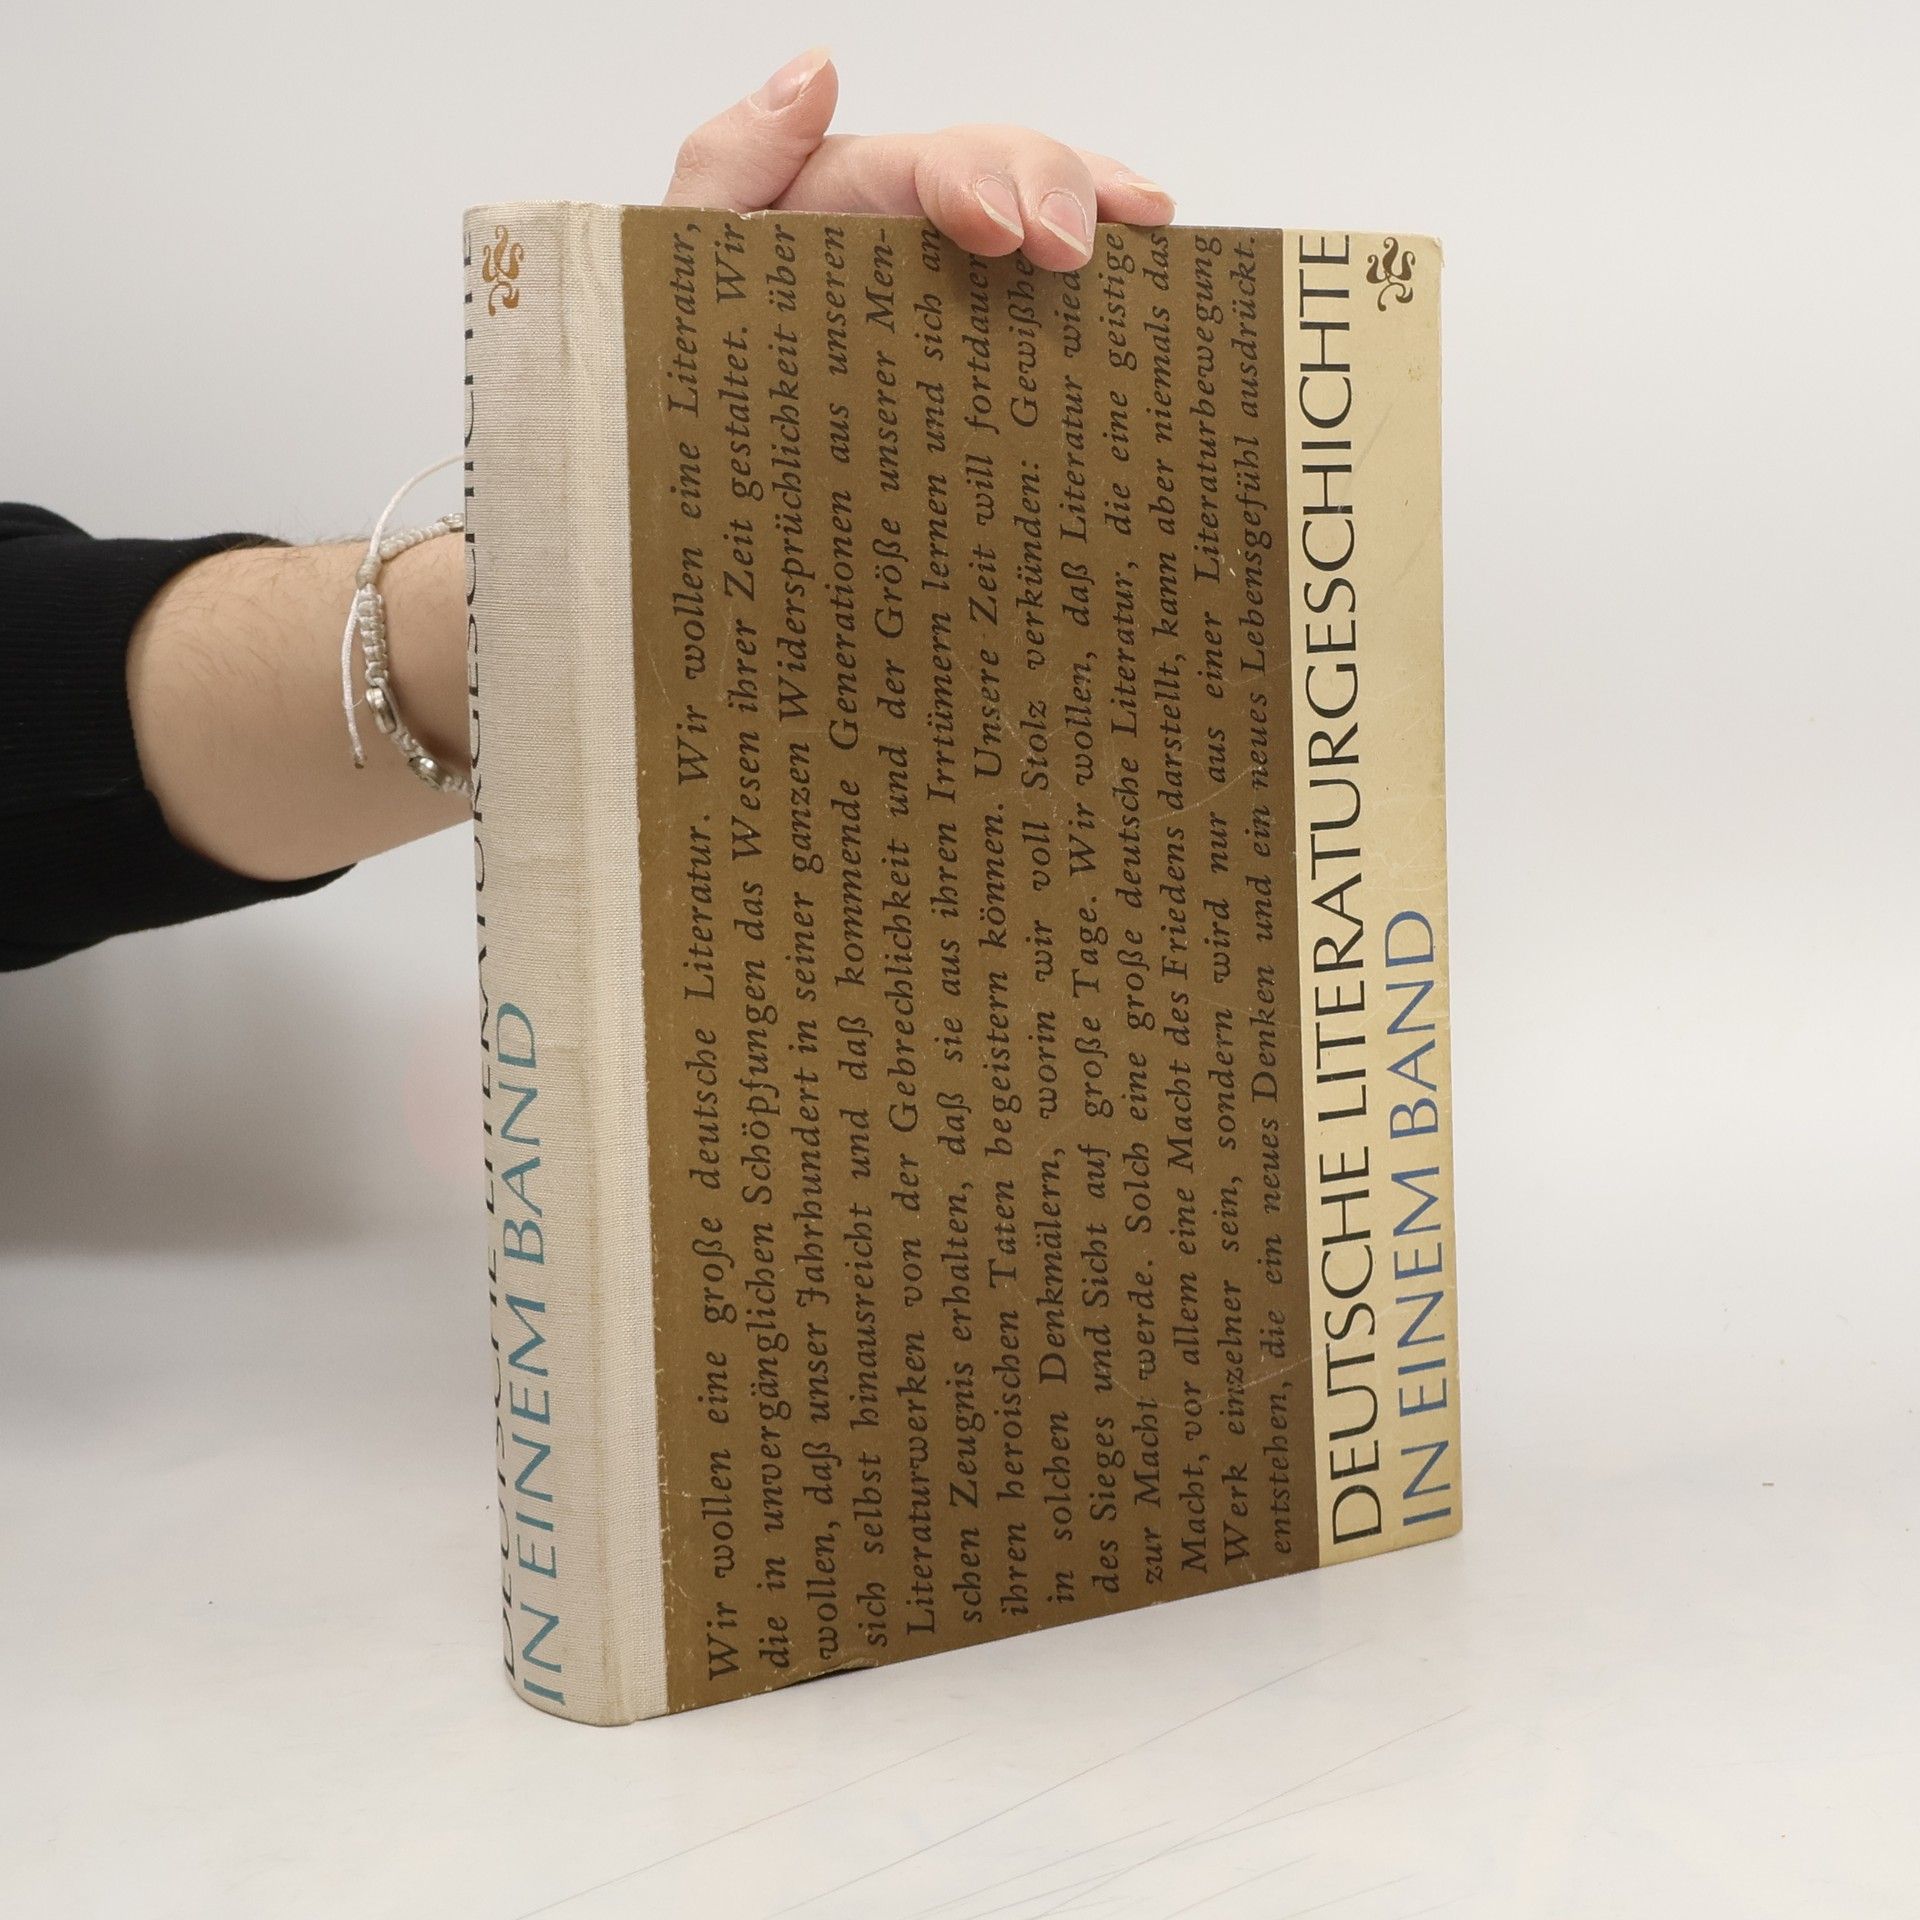 DEUTSCHE LITERATURGESCHICHTE
IN EINEM BAND
Wir wollen eine große deutsche Literatur. Wir wollen eine Literatur,
die in unvergänglichen Schöpfungen das Wesen ihrer Zeit gestaltet. Wir
wollen, daß unser Jahrhundert in seiner ganzen Widersprüchlichkeit über
sich selbst hinausreicht und daß kommende Generationen aus unseren
Literaturwerken von der Gebrechlichkeit und der Größe unserer Men-
schen Zeugnis erhalten, daß sie aus ihren Irrtümern lernen und sich an
ihren heroischen Taten begeistern können. Unsere Zeit will fortdauer
in solchen Denkmälern, worin wir voll Stolz verkünden: Gewißhe
des Sieges und Sicht auf große Tage. Wir wollen, daß Literatur wied
zur Macht werde. Solch eine große deutsche Literatur, die eine geistige
Macht, vor allem eine Macht des Friedens darstellt, kann aber niemals das
Werk einzelner sein, sondern wird nur aus einer Literaturbewegung
entstehen, die ein neues Denken und ein neues Lebensgefühl ausdrückt.
DEUTSCHE LITERATURGESCHICHTE
IN EINEM BAND